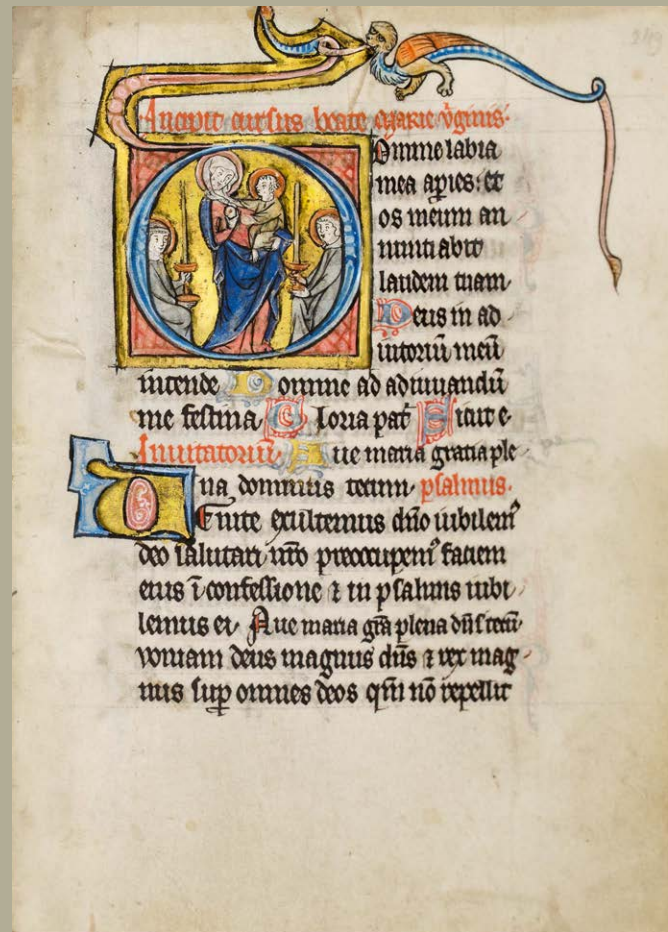 249
Incipit cursus beate marie v̓ginis.
Domine labia
mea ap̓ies: et
os meum an
nuntiabit
laudem tuam
Deus in ad
iutoriū meū
intende Domine ad adiuuandū
me festina Gloria pat̓ Sicut e
Inuitatoriū Aue maria gratia ple
na dominus tecum psalmus.
Venite exultemus dn̄o iubilem᷒
deo salutari nr̄o preoccupem᷒ faciem
eius ī confessione ⁊ in psalmis iubi
lemus ei Aue maria gr̄a plena dn̄s tecū
quoniam deus magnus dn̄s ⁊ rex mag
nus sup̄ omnes deos qm̄ nō repellit